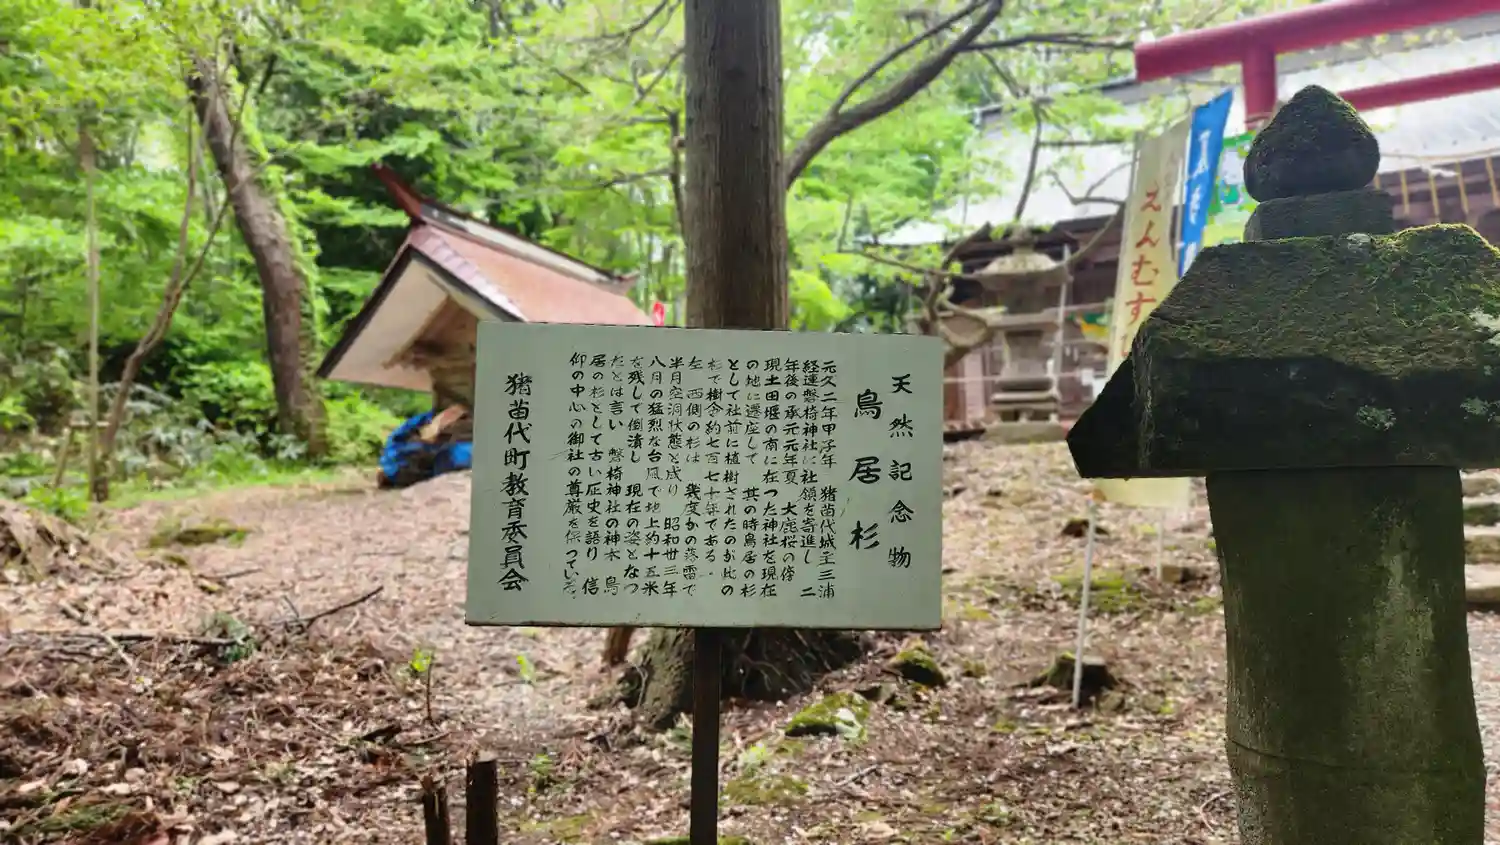 天然記念物
鳥居杉
元久二年甲子年 猪苗代城主三浦
経連磐椅神社に社領を寄進し 二
年後の承元元年夏 大鹿桜の傍
現土田堰の南に在った神社を現在
の地に遷座して 其の時鳥居の杉
として社前に植樹されたのが此の
杉で樹令約七百七十年である.
左 西側の杉は 幾度かの落雷で
半月空洞状態と成り 昭和卅三年
八月の猛烈な台風で地上約十五米
を残して倒潰し 現在の姿となつ
たとは言い 磐椅神社の神木 鳥
居の杉として古い歴史を語り 信
仰の中心の御社の尊厳を保っている
猪苗代町教育委員会
えんむす